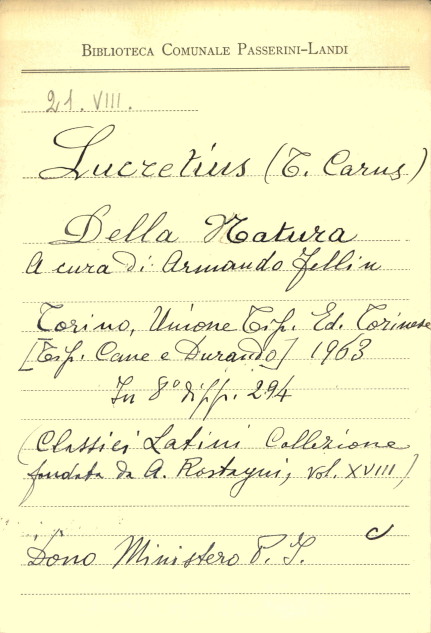 BIBLIOTECA COMUNALE PASSERINI-LANDI
21. VIII.
Lucretius (T. Carus)
Della Natura
A cura di Armando Fellin
Torino, Unione Tip. Ed. Torinese
[Tip. Cane e Durando] 1963
In 8° di pp. 294
(Classici Latini Collezione
fondata da A. Rostagni, vol. XVIII)
c
Dono Ministero P. I.